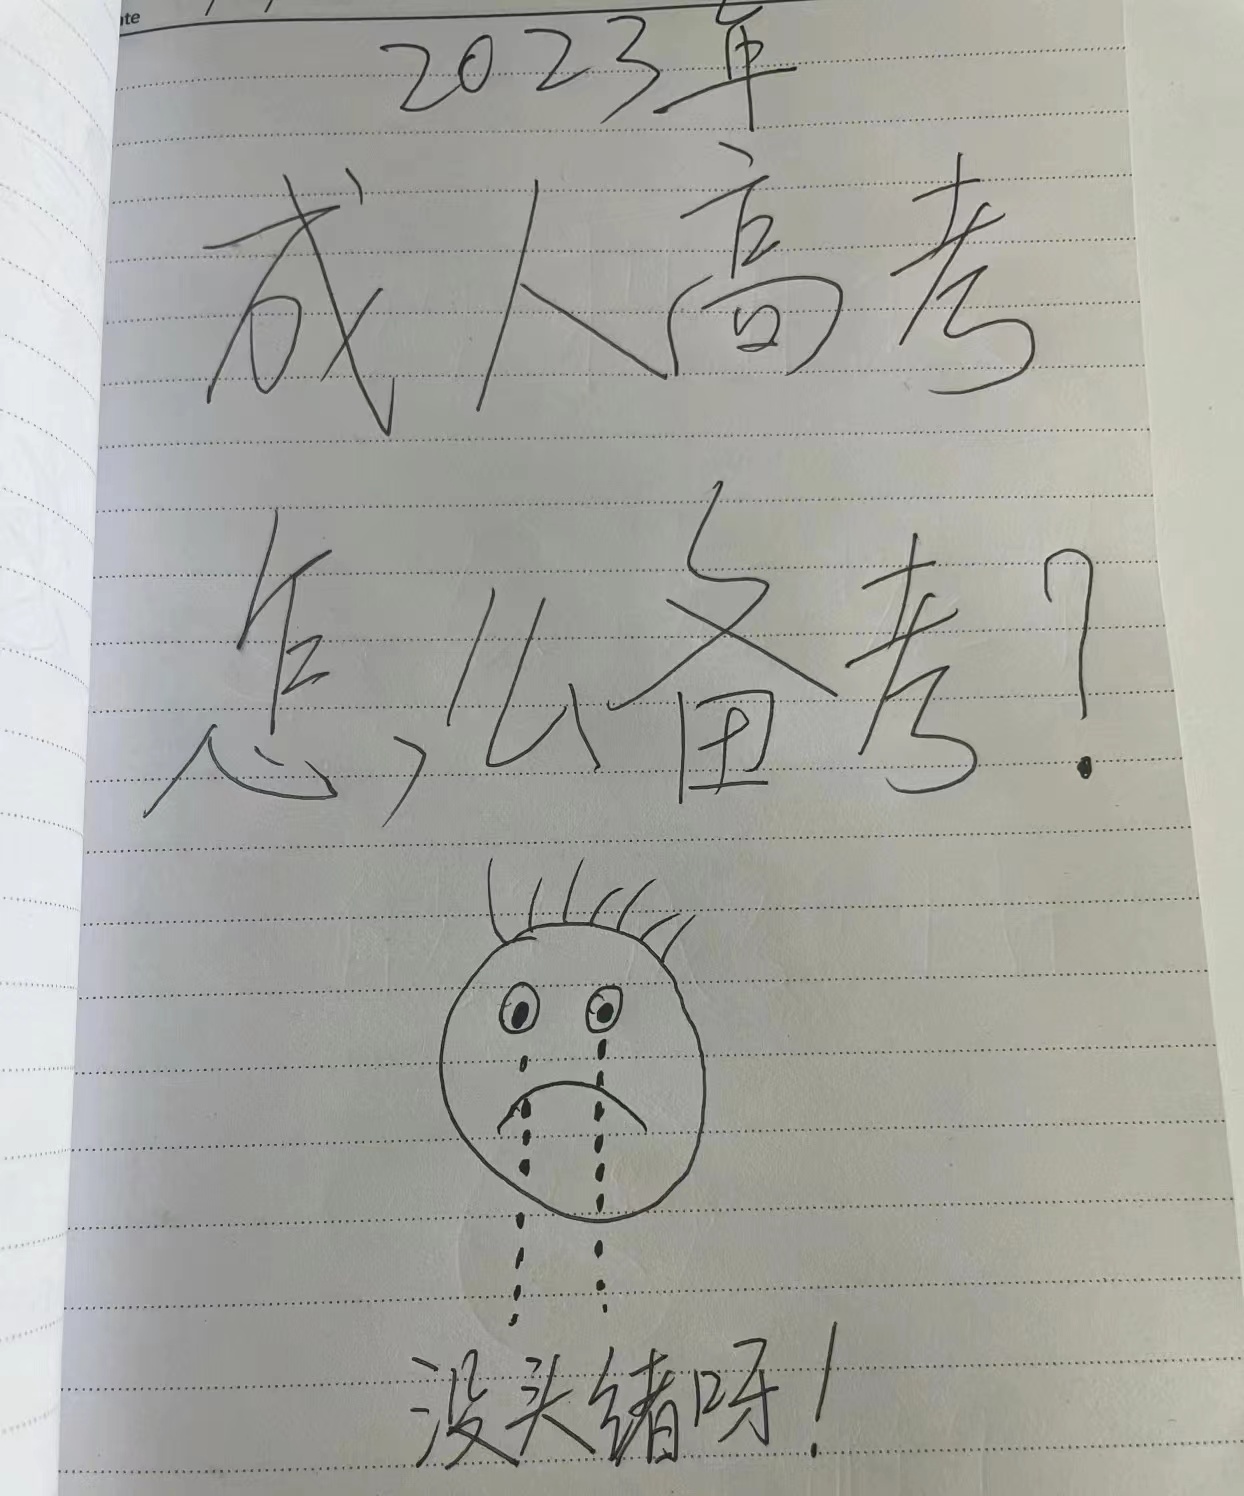 2023年
成人高考
怎么备考？
没头绪呀！